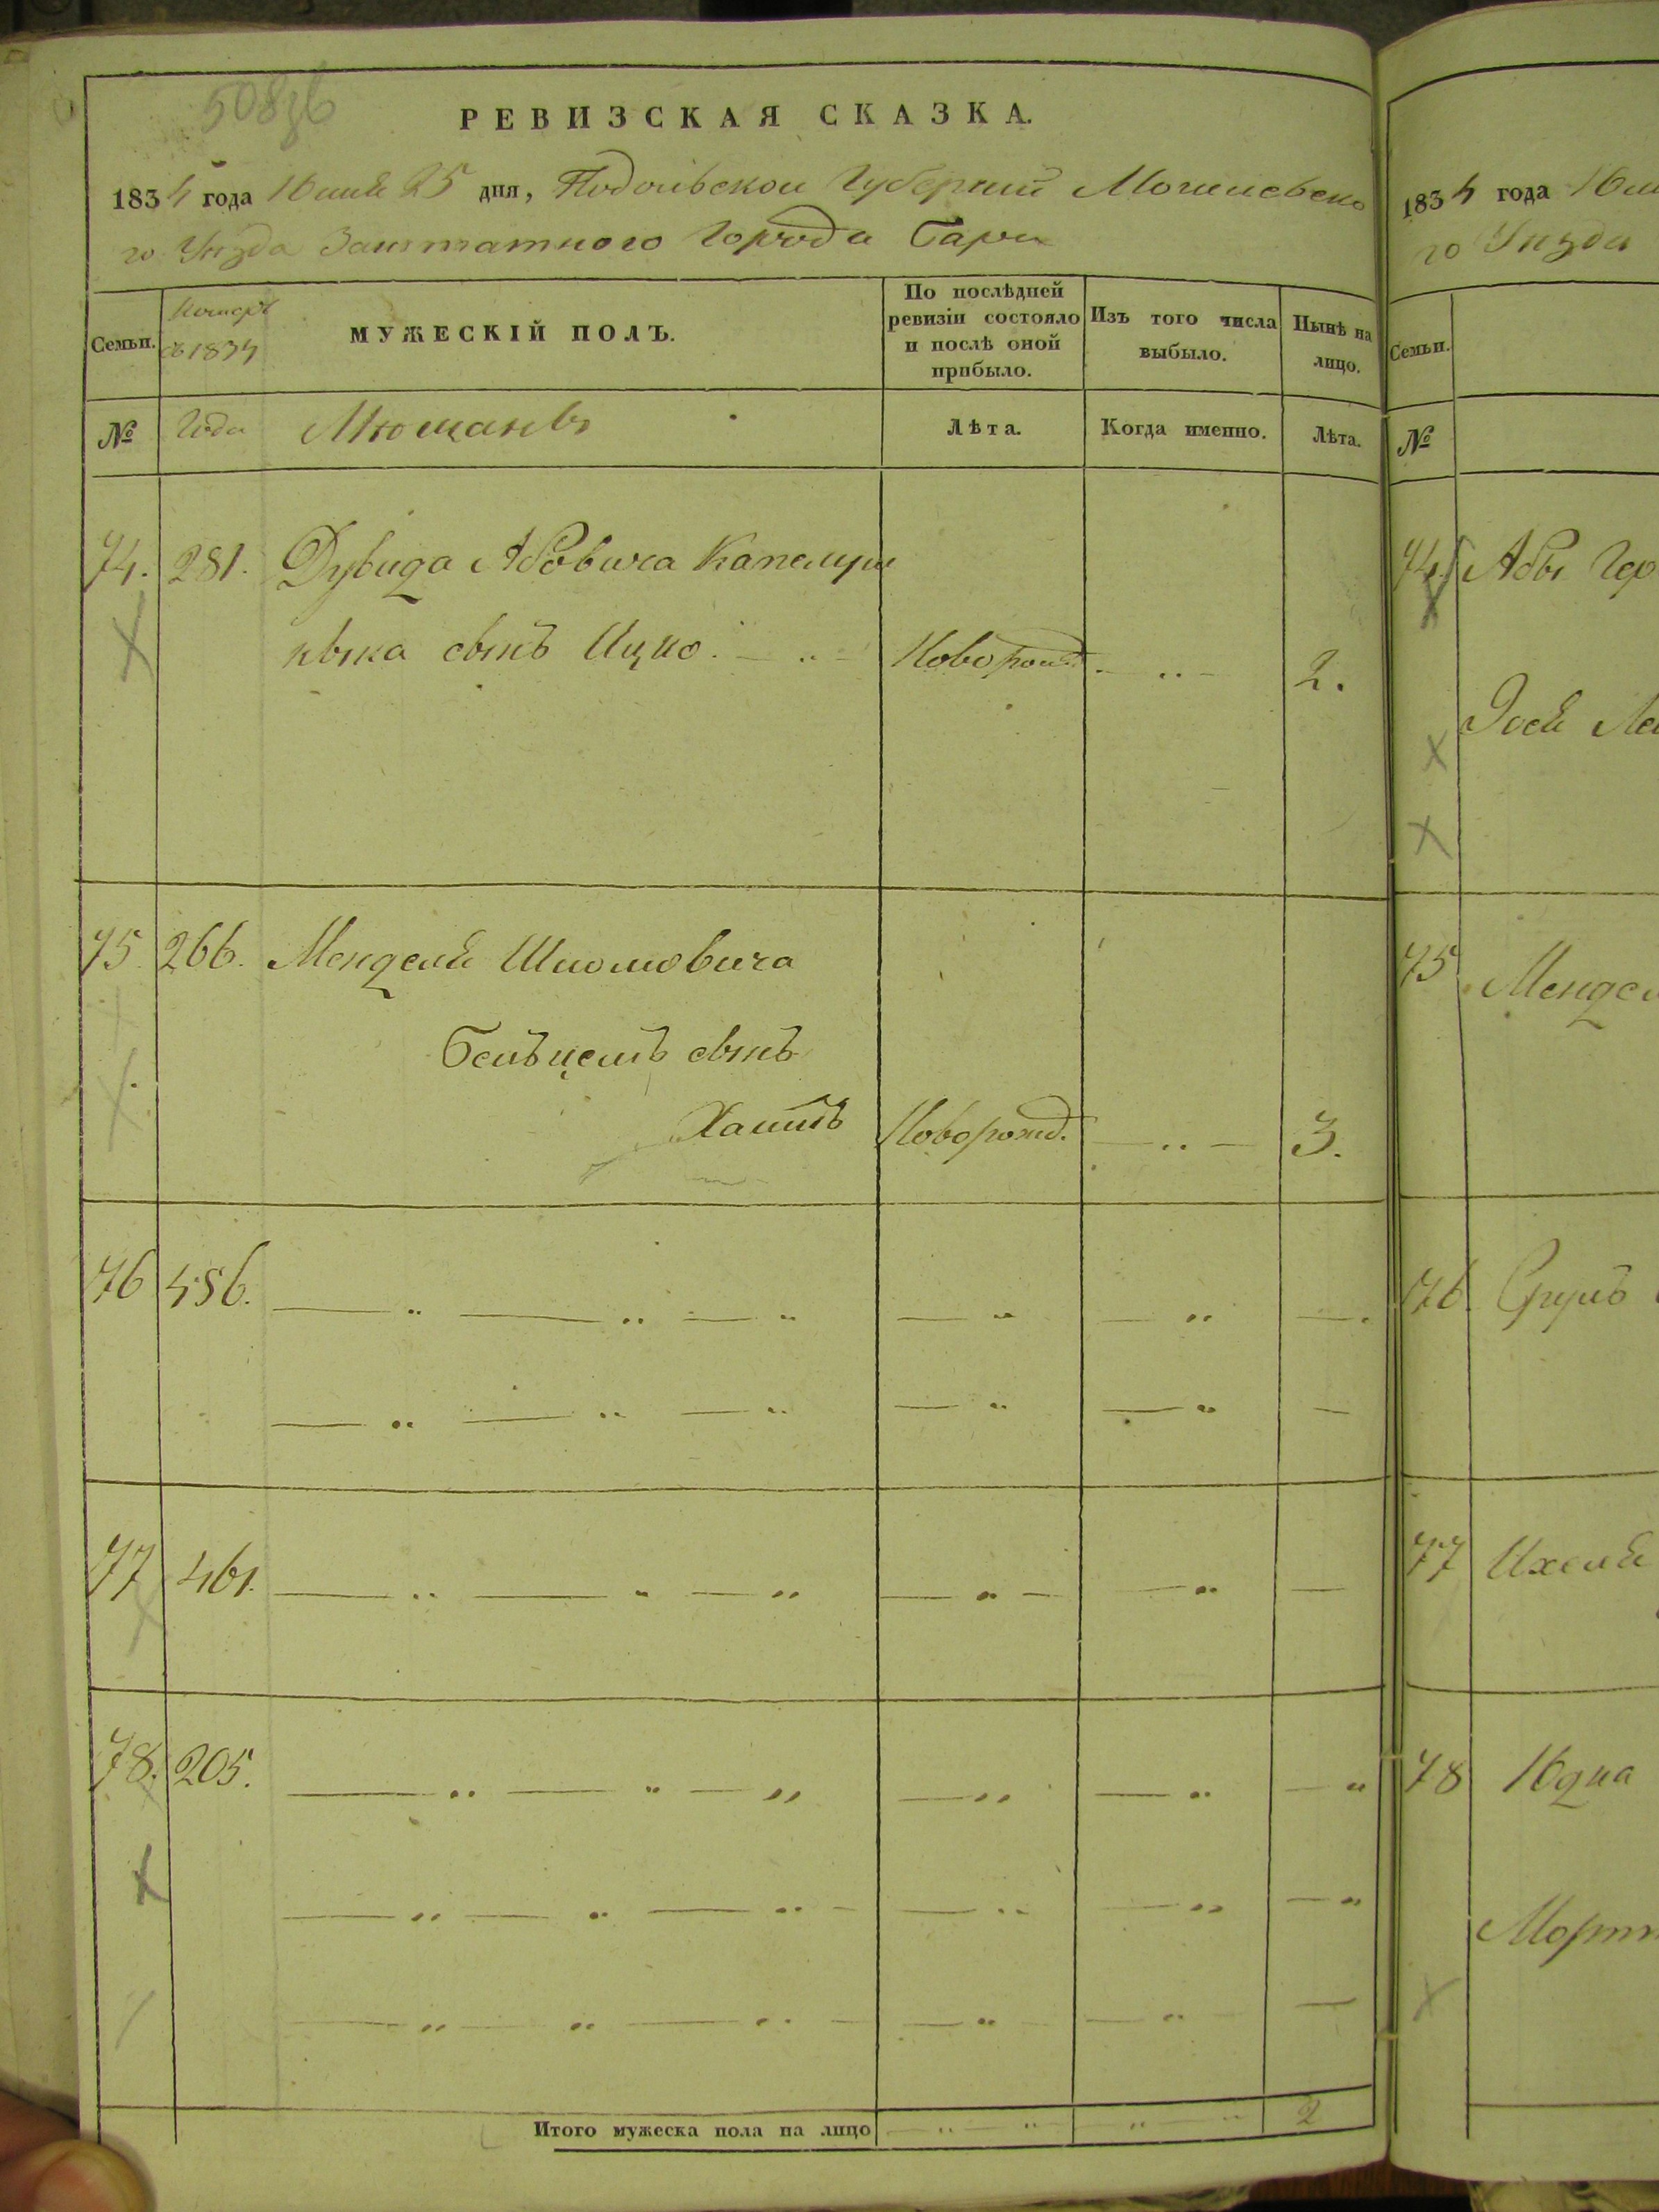 508
РЕВИЗСКАЯ СКАЗКА.
1834 года Июня 25 дня, Подольской Губернии Могилевско
го Уезда Заштатного Города Бара
Семьи.
Номеръ
съ 1834
МУЖЕСКІЙ ПОЛЪ.
По послѣдней ревизіи состояло и послѣ оной прибыло.
Изъ того числа выбыло.
Нынѣ на лицо.
№ Года Мющанъ Лѣта. Когда именно. Лѣта.
74. 281. Дувида Абовича Капелуш
ныка сынъ Ицко. Новорожд. 2.
75. 266. Менделя Шломовича
Бельцель сынъ
Хаимъ Новорожд. 3.
76 456.
77 461.
78. 205.
Итого мужеска пола на лицо 2
1834 года Ию
го Уезда
Семьи.
№
74. Абы Гер
75 Мендел
76. Сруль
77 Ихеля
78 Юдка